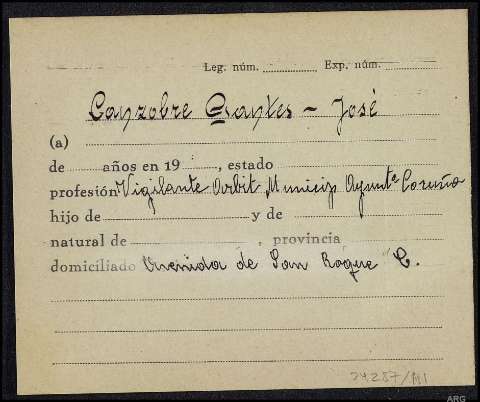 Leg. núm. Exp. núm.
Canzobre Dantes - José
(a)
de años en 19 , estado
profesión Vigilante Arbit Municip Aymtº Coruña
hijo de y de
natural de , provincia
domiciliado Avenida de San Roque C.
24.287/MI
ARG